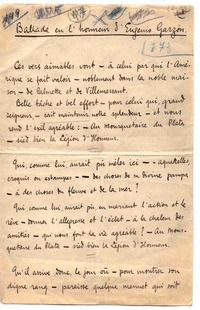 Ballade en l'honneur d'Eugenio Garzón.
1873
Ces vers aimables vont — à celui par qui l'Amé-
rique se fait valoir — noblement dans la noble mai-
son de Calmette et de Villemessant.
Belle tâche et bel effort — pour celui qui, grand
seigneur, — sait maintenir notre splendeur — et nous
rend l'exil agréable : — Au Mousquetaire du Plata
— sied bien la Légion d'Honneur.
Qui, comme lui, aurait pu mêler ici — aquarelles,
croquis ou estampes — des choses de sa divine pampa
— à des choses du fleuve et de la mer ?
Qui comme lui aurait pu, en mariant l'action et le
rêve — donner l'allégresse et l'éclat — à la chaleur des
amitiés — qui nous font la vie agréable ? — Au Mous-
quetaire du Plata — sied bien la Légion d'Honneur.
Qu'il arrive donc le jour où — pour montrer son
digne rang — paraisse quelque menuet qui soit